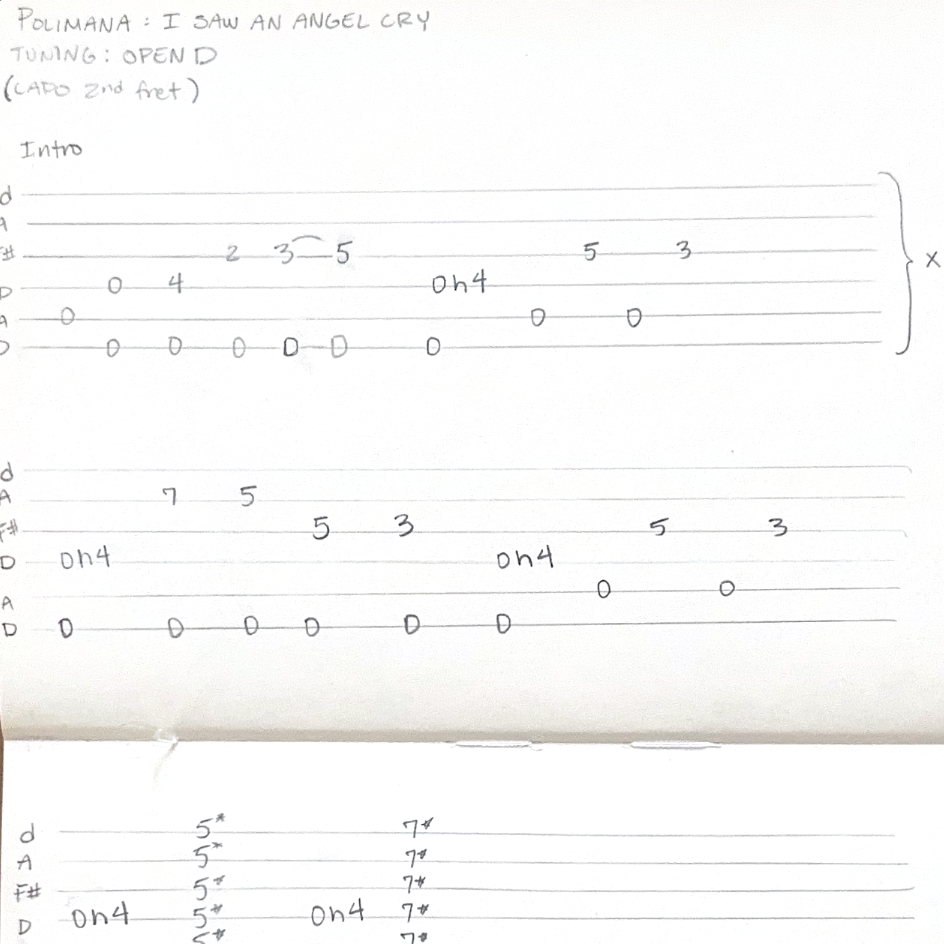 POLIMANA : I SAW AN ANGEL CRY
TUNING : OPEN D
(CAPO 2nd fret)
Intro
d
A
F# 2 3 5 5 3
D 0 4 0h4
A 0 0 0
D 0 0 0 0 0 0
X
d
A 7 5
F# 5 3 5 3
D 0h4 0h4
A 0 0
D 0 0 0 0 0 0
d 5* 7*
A 5* 7*
F# 5* 7*
D 0h4 5* 0h4 7*
5* 7*